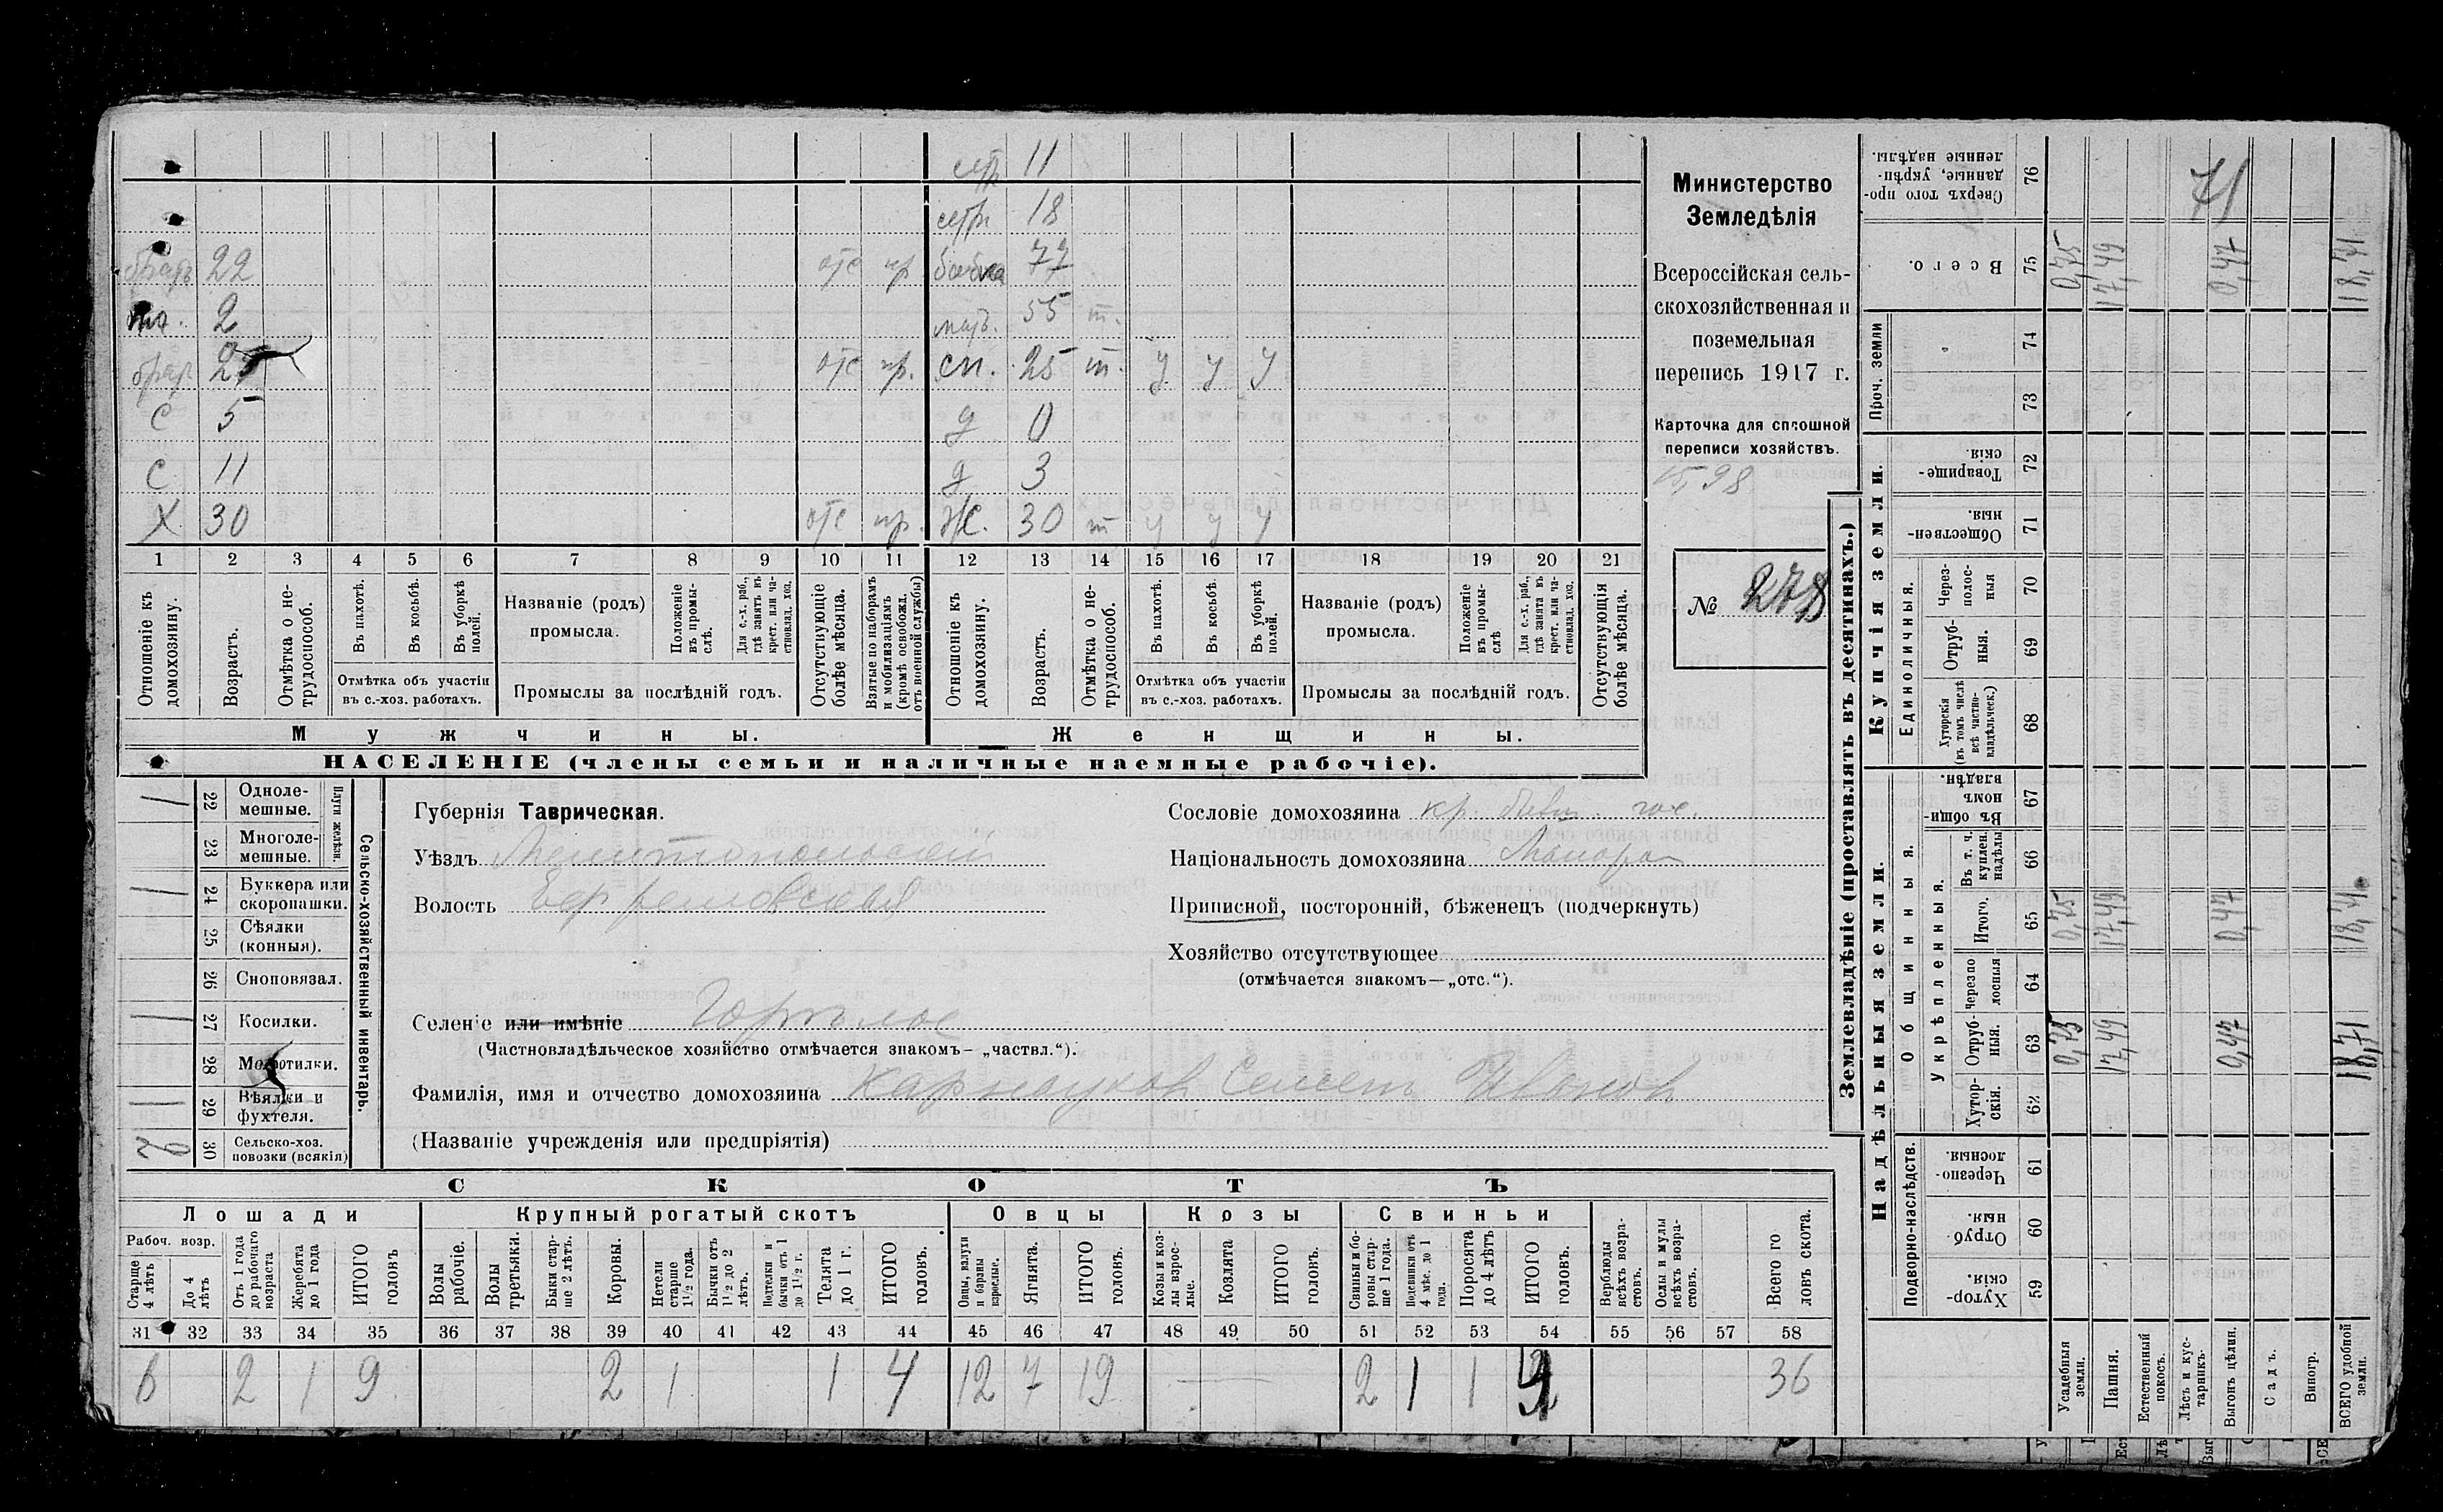 сестр 11
сестр 18
братъ 22 отс пр бабка 77
пл. 2 мать. 55 т.
брат 27 отс пр. сн. 25 т. у у у
С 5 д 0
С 11 д 3
Х 30 отс пр. Ж. 30 т у у у
1 2 3 4 5 6 7 8 9 10 11 12 13 14 15 16 17 18 19 20 21
Отношеніе къ домохозяину.
Возрастъ.
Отмѣтка о не-
трудоспособ.
Въ пахотѣ.
Въ косьбѣ.
Въ уборкѣ
полей.
Отмѣтка объ участіи
въ с.-хоз. работахъ.
Названіе (родъ)
промысла.
Положеніе
въ промы-
слѣ.
Для с.-х. раб.,
гдѣ занятъ въ
крест. или ча-
стновлад. хоз.
Промыслы за послѣдній годъ.
Отсутствующіе
болѣе мѣсяца.
Взятые по наборамъ
и мобилизаціямъ
(кромѣ освобожд.
отъ военной службы)
Отношеніе къ
домохозяину.
Возрастъ.
Отмѣтка о не-
трудоспособ.
Въ пахотѣ.
Въ косьбѣ.
Въ уборкѣ
полей.
Отмѣтка объ участіи
въ с.-хоз. работахъ.
Названіе (родъ)
промысла.
Положеніе
въ промы-
слѣ
Для с.-х. раб.,
гдѣ занята въ
крест. или ча-
стновлад. хоз.
Промыслы за послѣдній годъ.
Отсутствующія
болѣе мѣсяца.
Мужчины.
Женщины.
НАСЕЛЕНІЕ (члены семьи и наличные наемные рабочіе).
Министерство
Земледѣлія
Всероссійская сель-
скохозяйственная и
поземельная
перепись 1917 г.
Карточка для сплошной
переписи хозяйствъ.
15,98
№ 278
Сельско-хозяйственный инвентарь.
Плуги желѣзн.
1 22 Однолe-
мешные.
23 Многоле-
мешные.
1 24 Буккера или
скоропашки.
25 Сѣялки
(конныя).
26 Сноповязал.
1 27 Косилки.
28 Молотилки.
1 29 Вѣялки и
фухтеля.
30 Сельско-хоз.
повозки (всякія)
Губернія Таврическая.
Уѣздъ Мелитопольскій
Волость Ефремовская
Селеніе или имѣніе Горѣлое
(Частновладѣльческое хозяйство отмѣчается знакомъ—„частвл.“).
Фамилія, имя и отчество домохозяина Карнауховъ Семенъ Ивановъ
(Названіе учрежденія или предпріятія)
Сословіе домохозяина кр. бывш. гос.
Національность домохозяина Малорос
Приписной, посторонній, бѣженецъ (подчеркнуть)
Хозяйство отсутствующее
(отмѣчается знакомъ—„отс.“).
СКОТЪ
Лошади
Крупный рогатый скотъ
Овцы
Козы
Свиньи
Рабоч. возр.
Старше
4 лѣтъ
До 4
лѣтъ
Отъ 1 года
до рабочаго
возраста
Жеребята
до 1 года
ИТОГО
головъ
Волы
рабочіе.
Волы
третьяки.
Быки стар-
ше 2 лѣтъ.
Коровы.
Нетели
старше
1½ года.
Бычки отъ
1½ до 2
лѣтъ.
Подтелки и
бычки отъ 1
до 1½ г.
Телята
до 1 г.
ИТОГО
головъ.
Овцы, валухи
и бараны
взрослые.
Ягнята.
ИТОГО
головъ.
Козы и коз-
лы взрос-
лые.
Козлята
ИТОГО
головъ.
Свиньи и бо-
ровы стар-
ше 1 года.
Подсвинки отъ
4 мѣс. до 1
года.
Поросята
до 4 лѣтъ
ИТОГО
головъ.
Верблюды
всѣхъ возра-
стовъ.
Ослы и мулы
всѣхъ возра-
стовъ.
Всего го
ловъ скота.
31 32 33 34 35 36 37 38 39 40 41 42 43 44 45 46 47 48 49 50 51 52 53 54 55 56 57 58
6 2 1 9 2 1 1 4 12 7 19 2 1 1 4 36
Землевладѣніе (проставлять въ десятинахъ.)
Надѣльныя земли.
Купчія земли.
Проч. земли
Подворно-наслѣдств.
Общинныя.
Укрѣпленныя.
Единоличныя.
Сверхъ того про-
данные, укрѣп-
ленные надѣлы.
76
71
Всего. 75 0,75 17,49 0,47 18,71
74
73
Товарище-
скія. 72
Обществен-
ныя. 71
Через-
полос-
ныя 70
Отруб-
ныя. 69
Хуторскія
(въ томъ числѣ
всѣ частно-
владѣльческ.) 68
Въ общин-
номъ
владѣн. 67
Въ т. ч.
куплен.
надѣлы 66
Итого. 65 0,75 17,49 0,47 18,71
Черезпо
лосныя 64
Отруб-
ныя. 63 0,75 17,49 0,47 18,71
Хутор-
скія. 62
Черезпо-
лосныя. 61
Отруб
ныя. 60
Хутор-
скія. 59
Усадебныя
земли.
Пашня.
Естественный
покосъ.
Лѣсъ и кус-
тарникъ.
Выгонъ цѣлин.
Садъ.
Виногр.
ВСЕГО удобной
земли.